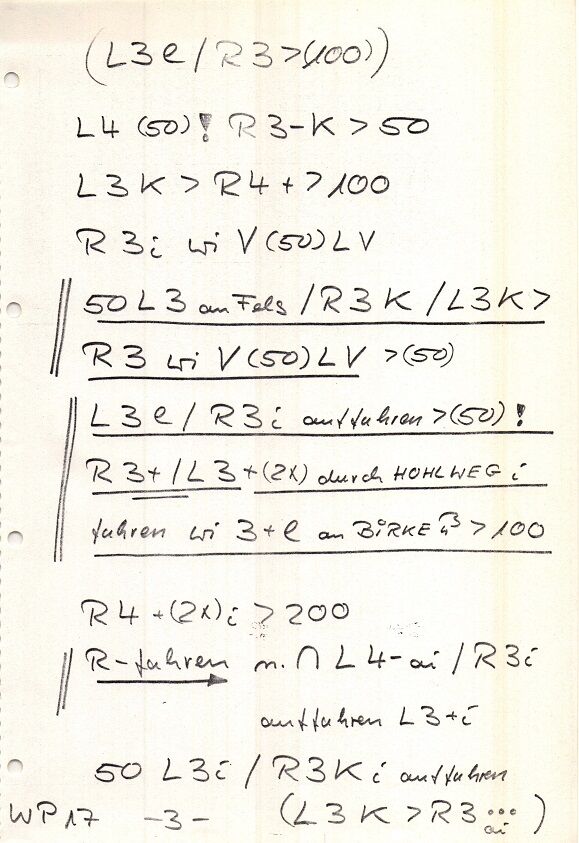 (L3e/R3>(100))
L4 (50)! R3-K > 50
L3K > R4+ > 100
R3i wi V(50)LV
50 L3 an Fels /R3K /L3K>
R3 wi V(50)LV >(50)
L3e/R3i auffahren >(50)!
R3+/L3+(2x) durch HOHLWEG i
fahren wi 3+e an BIRKE > 100
R4+(2x)i > 200
R-fahren n. ∩ L4-ai /R3i
auffahren L3+i
50 L3i /R3Ki auffahren
WP17 -3- (L3K>R3...ai)